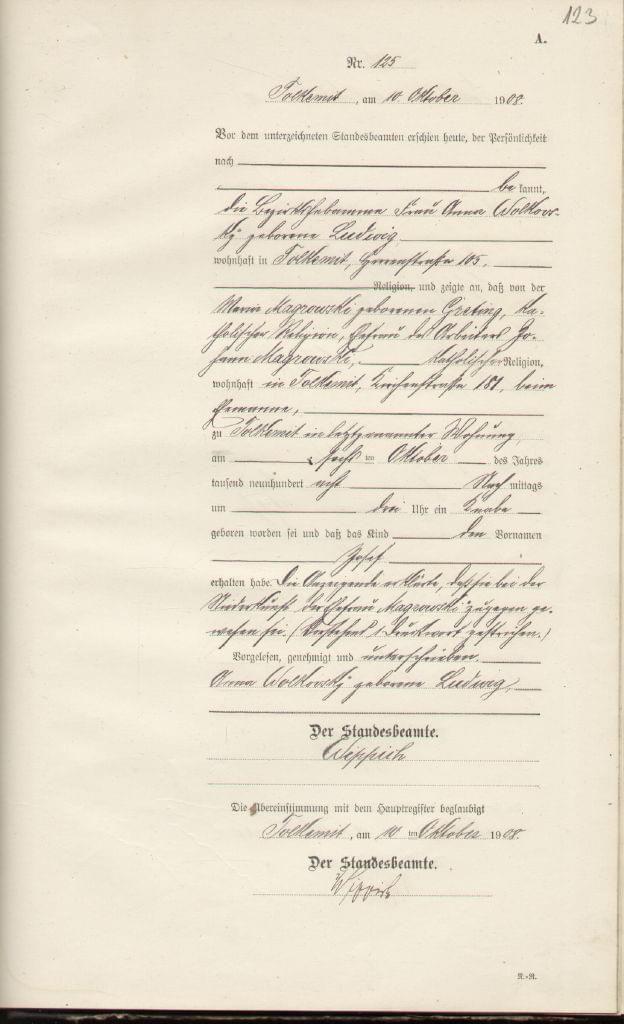 123
A.
Nr. 125
Tolkemit, am 10. Oktober 1908.
Vor dem unterzeichneten Standesbeamten erschien heute, der Persönlichkeit
nach
be kannt,
die Bezirkshebamme Frau Anna Wolkows-
ky geborene Ludwig
wohnhaft in Tolkemit, Herrenstraße 105.
Religion, und zeigte an, daß von der
Maria Magrowski geborenen Greting, ka-
tholischer Religion, Ehefrau des Arbeiters Jo-
hann Magrowski, katholischer Religion,
wohnhaft in Tolkemit, Kirchenstraße 181, beim
Ehemanne,
zu Tolkemit in letztgenannter Wohnung
am sechsten Oktober des Jahres
tausend neunhundert acht Nach mittags
um drei Uhr ein Knabe
geboren worden sei und daß das Kind den Vornamen
Josef
erhalten habe. Die Anzeigende erklärte, daß sie bei der
Niederkunft der Ehefrau Magrowski zugegen ge-
wesen sei. (Vorstehend 1 Druckwort gestrichen.)
Vorgelesen, genehmigt und unterschrieben.
Anna Wolkowsky geborene Ludwig,
Der Standesbeamte.
Wippich
Die Übereinstimmung mit dem Hauptregister beglaubigt
Tolkemit, am 10 ten Oktober 1908.
Der Standesbeamte.
Wippich
R.-R.